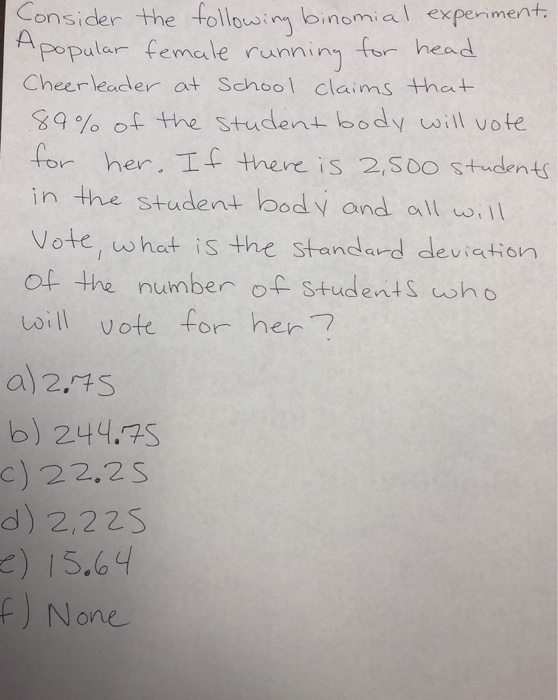 Consider the following binomial experiment.
A popular female running for head
Cheerleader at School claims that
89% of the student body will vote
for her. If there is 2,500 students
in the student body and all will
Vote, what is the standard deviation
of the number of students who
will vote for her?
a) 2.75
b) 244.75
c) 22.25
d) 2,225
e) 15.64
f) None